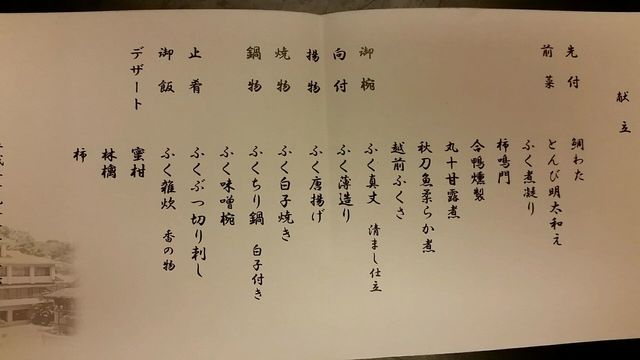 献立
先付 鯛わた
前菜 とんび明太和え
ふく煮凝り
柿鳴門
合鴨燻製
丸十甘露煮
秋刀魚柔らか煮
越前ふくさ
御椀 ふく真丈 清まし仕立
向付 ふく薄造り
揚物 ふく唐揚げ
焼物 ふく白子焼き
鍋物 ふくちり鍋 白子付き
ふく味噌椀
止肴 ふくぶつ切り刺し
御飯 ふく雑炊 香の物
デザート 蜜柑
林檎
柿